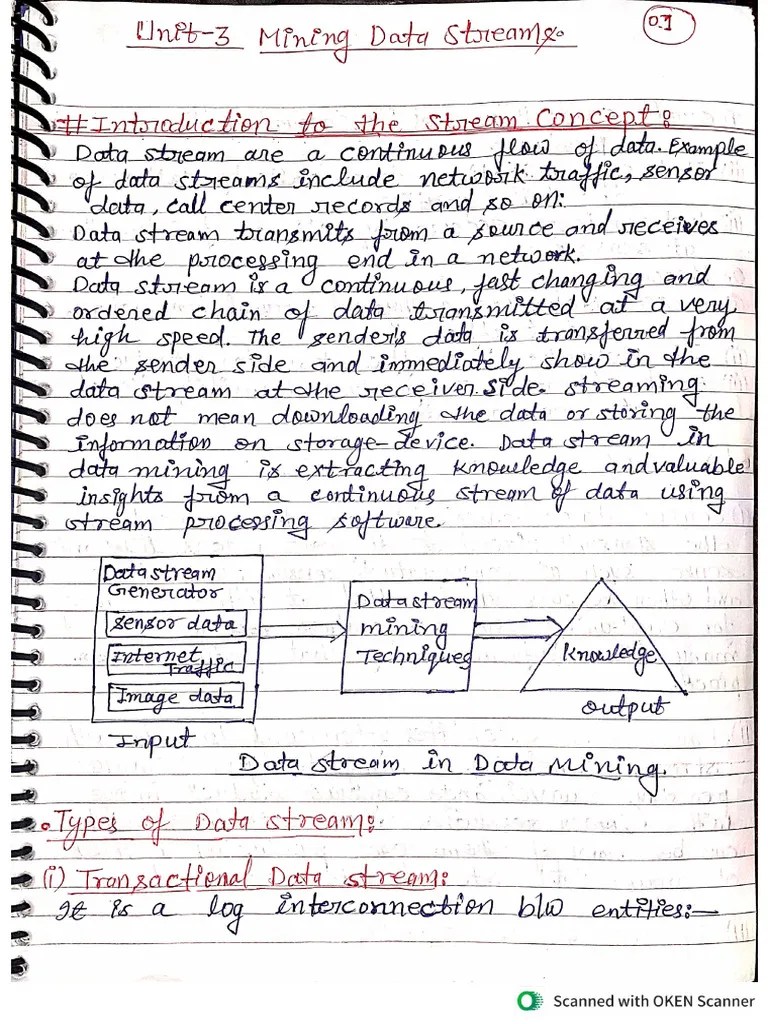 0.1
Unit-3 Mining Data Streams.
# Introduction to the Stream Concept:
Data stream are a continuous flow of data. Example
of data streams include network traffic, sensor
data, call center records and so on:
Data stream transmits from a source and receives
at the processing end in a network.
Data stream is a continuous, fast changing and
ordered chain of data transmitted at a very
high speed. The sender's data is transferred from
the sender side and immediately show in the
data stream at the receiver side. streaming
does not mean downloading the data or storing the
information on storage-device. Data stream in
data mining is extracting knowledge and valuable
insights from a continuous stream of data using
stream processing software.
Data stream
Generator
sensor data
Internet
Traffic
Image data
Input
Data stream
mining
Techniques
Knowledge
output
Data stream in Data Mining.
• Types of Data stream:
(i) Transactional Data stream:
It is a log interconnection b/w entities:—
Scanned with OKEN Scanner